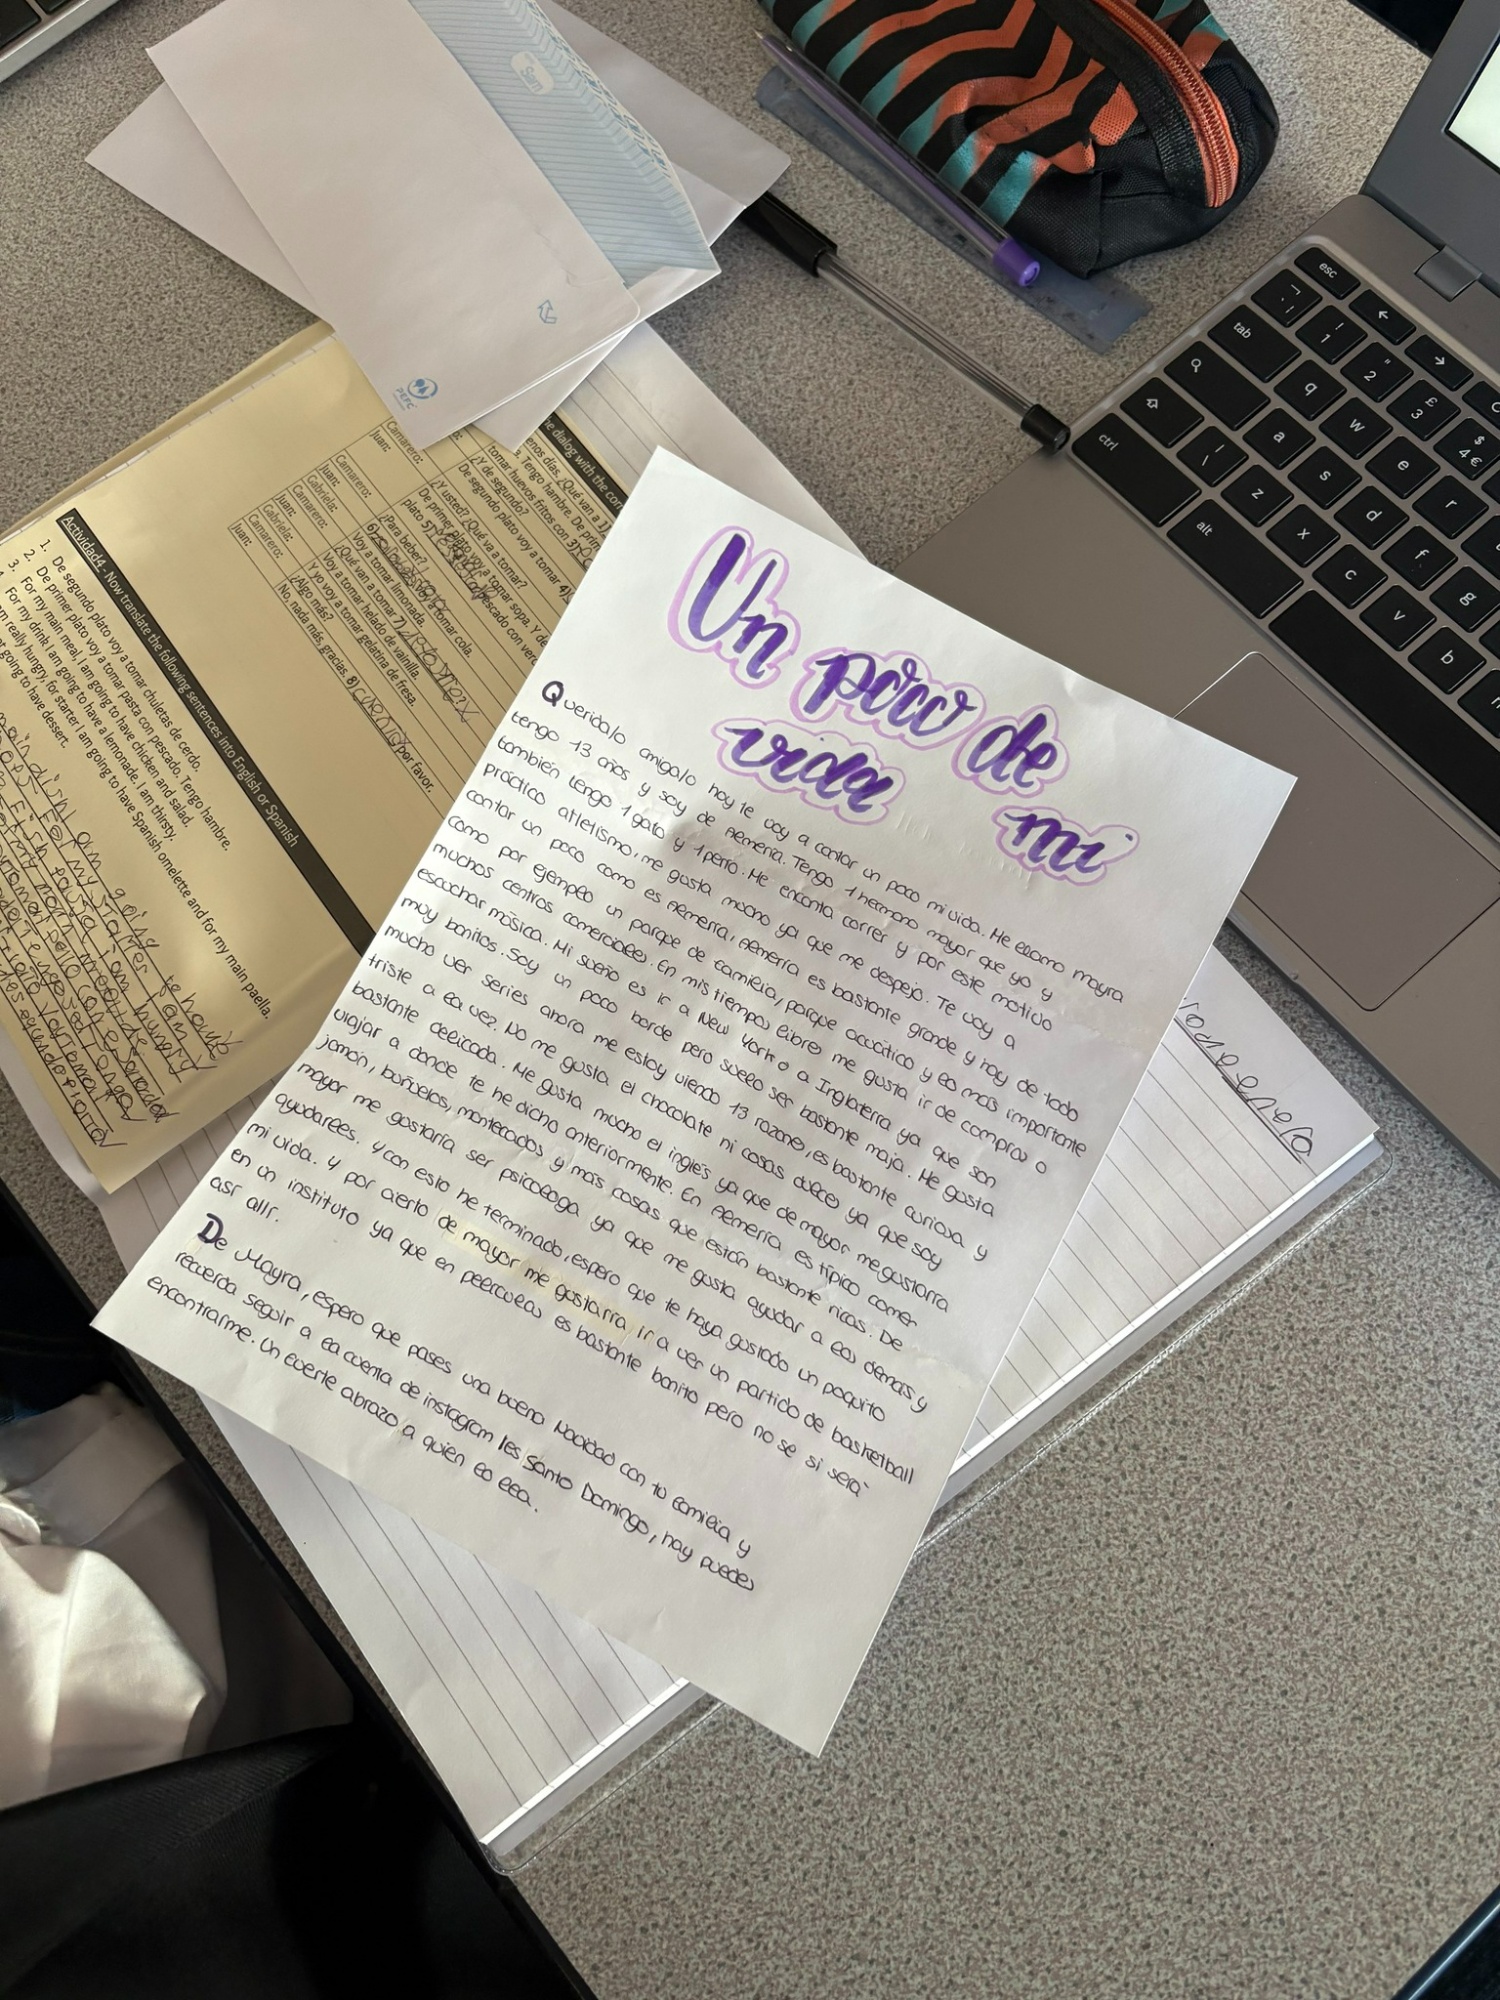 Un poco de
vida mi
Querida/o amiga/o hoy te voy a contar un poco mi vida. Me llamo mayra
tengo 13 años y soy de Almería. Tengo 1 hermano mayor que yo y
también tengo 1 gato y 1 perro. Me encanta correr y por este motivo
práctico atletismo, me gusta mucho ya que me despejo. Te voy a
contar un poco como es Almería, Almería es bastante grande y hay de todo
como por ejemplo un parque de familia, parque acuático y lo más importante
muchos centros comerciales. En mis tiempos libres me gusta ir de compras o
escuchar música. Mi sueño es ir a New York o a Inglaterra ya que son
muy bonitos. Soy un poco borde pero suelo ser bastante maja. Me gusta
mucho ver series ahora me estoy viendo 13 razones, es bastante curiosa y
triste a la vez. No me gusta el chocolate ni cosas dulces ya que soy
bastante delicada. Me gusta mucho el inglés ya que de mayor me gustaría
viajar a donde te he dicho anteriormente. En Almería es típico comer
jamón, buñuelos, mantecados y más cosas que están bastante ricas. De
mayor me gustaría ser psicóloga ya que me gusta ayudar a los demás y
ayudarles. Y con esto he terminado, espero que te haya gustado un poquito
mi vida. Y por cierto de mayor me gustaría ir a ver un partido de basketball
en un instituto ya que en películas es bastante bonito pero no se si será
así allí.
De Mayra, espero que pases una buena Navidad con tu familia y
recuerda seguir a la cuenta de instagram Ies Santo Domingo, hay puedes
encontrarme. Un fuerte abrazo a quien lo lea.
Sam
PEFC
he dialog with the cor
Camarero:
Juan:
Camarero:
Juan:
Gabriela:
Camarero:
Juan:
Gabriela:
Camarero:
Juan:
enos días. ¿Qué van a 1)
Tengo hambre. De prim
tomar huevos fritos con 3)
¿Y de segundo?
De segundo plato voy a tomar 4)
¿Y usted? ¿Qué va a tomar?
De primer plato voy a tomar sopa. Y de
plato 5) pescado con verd
¿Para beber?
6) voy a tomar cola.
Voy a tomar limonada.
¿Qué van a tomar 7)
Voy a tomar helado de vainilla.
Y yo voy a tomar gelatina de fresa.
¿Algo más?
No, nada más, gracias. 8) cuenta por favor.
Actividad4 - Now translate the following sentences into English or Spanish
1. De segundo plato voy a tomar chuletas de cerdo.
2. De primer plato voy a tomar pasta con pescado. Tengo hambre.
3. For my main meal, I am going to have chicken and salad.
For my drink I am going to have a lemonade. I am thirsty.
m really hungry, for starter I am going to have Spanish omelette and for my main paella.
ot going to have dessert.
esc
tab
ctrl
alt
! 1
" 2
£ 3
$ 4 €
q
w
e
r
a
s
d
f
g
z
x
c
v
b
\